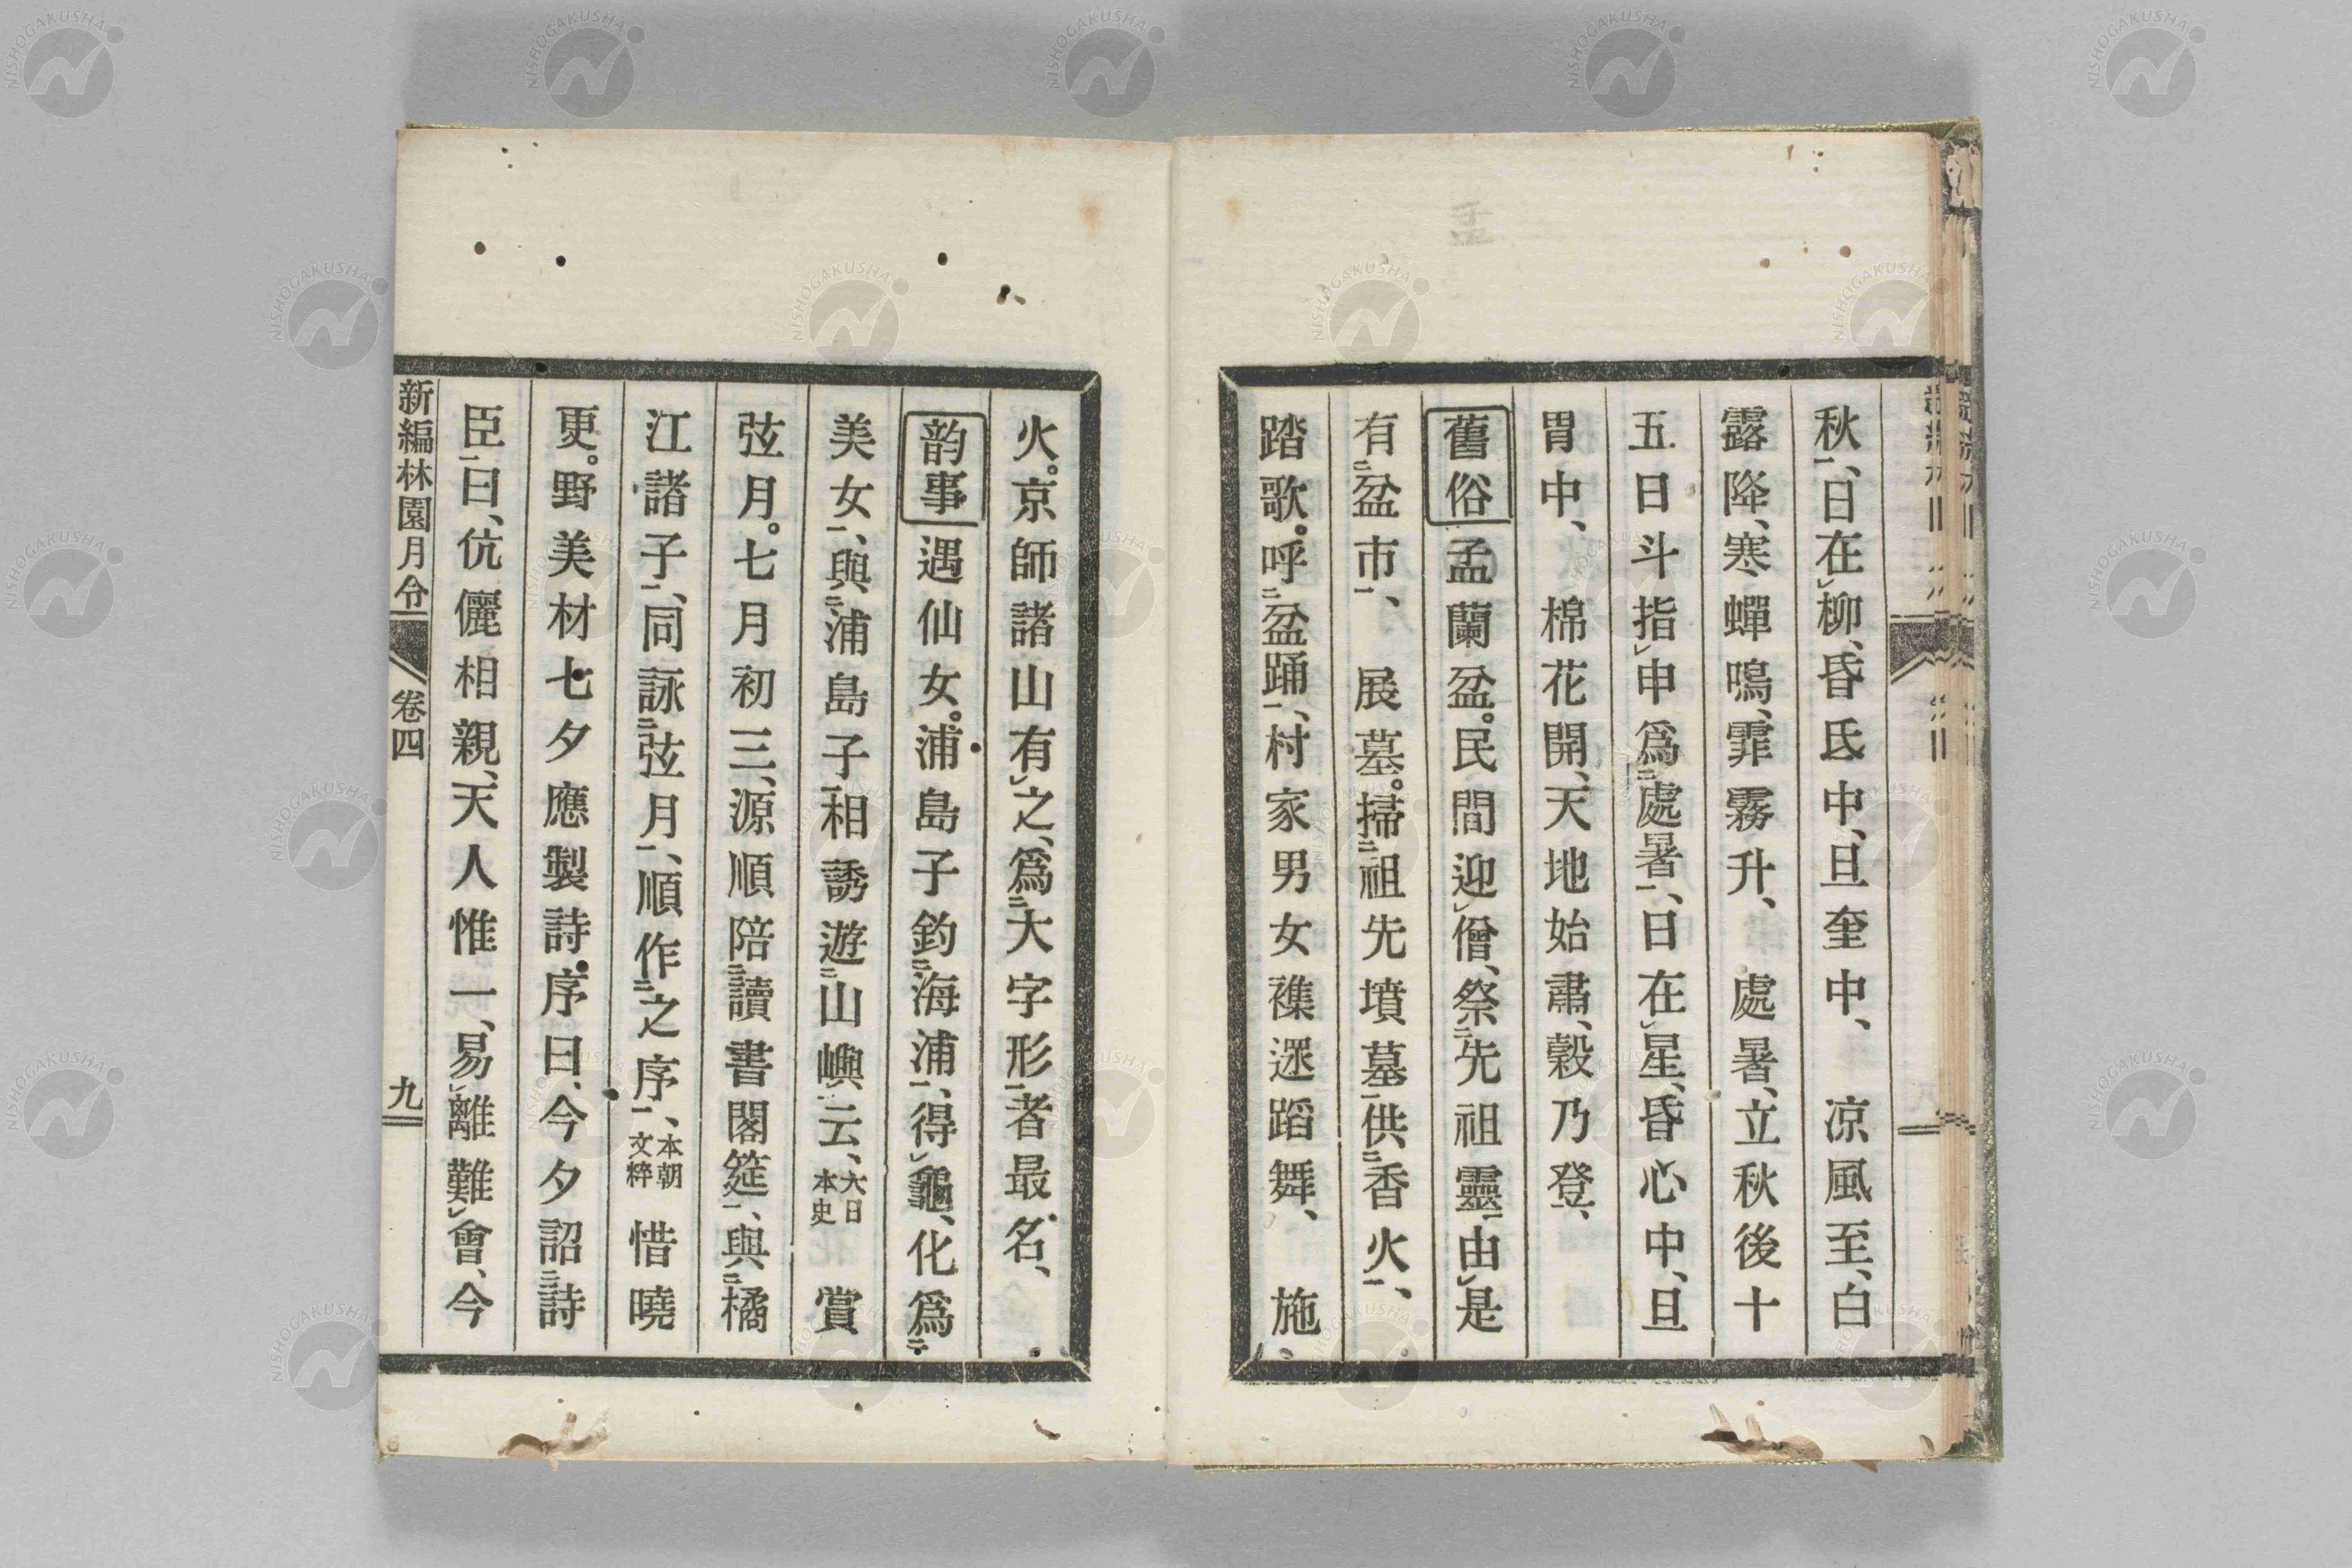 秋㆒、日在㆑柳、昏氐中、旦奎中、　凉風至、白
露降、寒蟬鳴、霏霧升、　處暑、立秋後十
五日斗指㆑申爲㆓處暑㆒、日在㆑星、昏心中、旦
胃中、　棉花開、天地始肅、穀乃登、
舊俗　孟蘭盆。民間迎㆑僧、祭㆓先祖靈㆒由㆑是
有㆓盆市㆒、　展墓。掃㆓祖先墳墓㆒供㆓香火㆒、
踏歌。呼㆓盆踊㆒、村家男女襍遝蹈舞、　施
火。京師諸山有㆑之、爲㆓大字形㆒者最名、
韵事　遇仙女。浦島子釣㆓海浦㆒、得㆑龜、化爲㆓
美女㆒、與㆓浦島子㆒相誘遊㆓山嶼㆒云、大日本史　賞
弦月。七月初三、源順陪㆓讀書閣筵㆒、與㆓橘
江諸子㆒、同詠㆓弦月㆒、順作㆓之序㆒、本朝文粹　惜曉
更。野美材七夕應製詩序曰、今夕詔㆓詩
臣㆒曰、伉儷相親、天人惟一、易㆑離難㆑會、今
新編林園月令　卷四　九
NISHOGAKUSHA